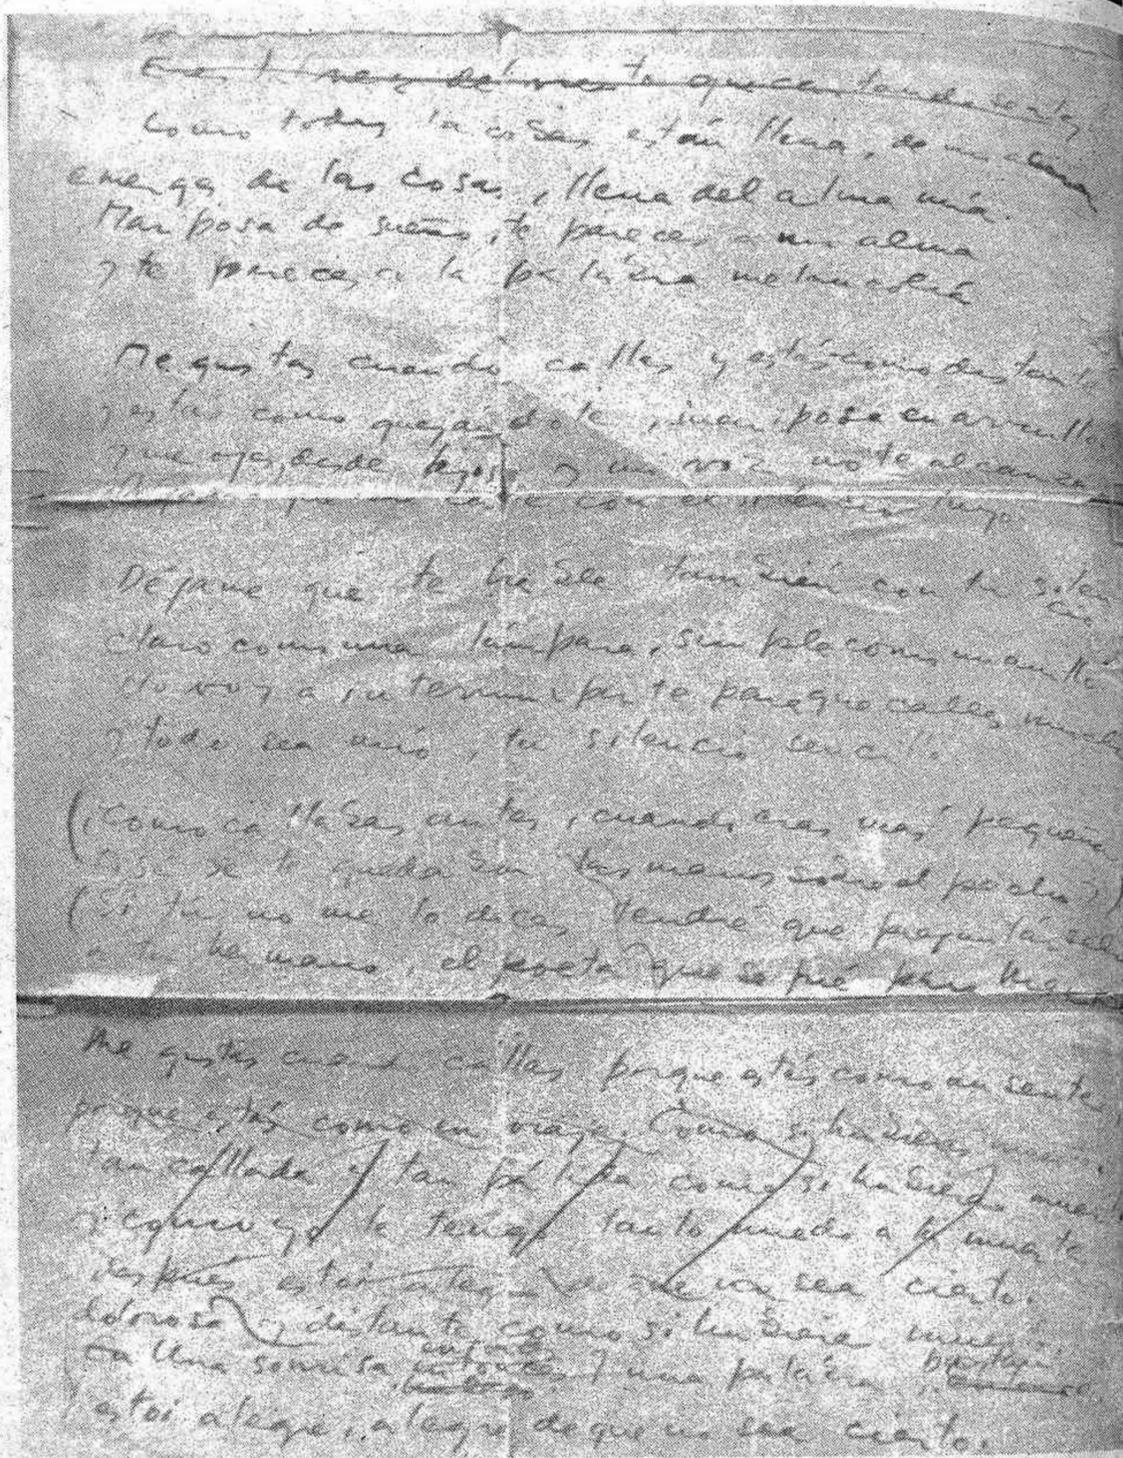 Como todas las cosas están llenas de mi alma
emerges de las cosas, llena del alma mía.
Mariposa de sueño, te pareces a mi alma
y te pareces a la palabra melancolía

Me gustas cuando callas y estás como distante
y estás como quejándote, mariposa en arrullo
y me oyes, desde lejos, y mi voz no te alcanza
que me calle con el silencio tuyo.

Déjame que te hable también con tu silencio
claro como una lámpara, simple como un anillo
No voy a interrumpirte para que calles mucho
y todo sea mío, tu silencio sencillo.

(¿Como callabas antes, cuando eras más pequeña
se te quedaban las manos sobre el pecho?)
(Si tú no me lo dices, tendré que preguntárselo
a tu hermano, el poeta que se fué para

Me gustas cuando callas porque estás como ausente
porque estás como en viaje. Como si hubieras
tan callada y tan pálida como si hubieras muerto
y como yo le tengo tanto miedo a la muerte
después estoy alegre de que no sea cierto.
dolorosa y distante como si hubieras muerto
Una sonrisa, entonces y una palabra bastan
estoi alegre, alegre de que no sea cierto.